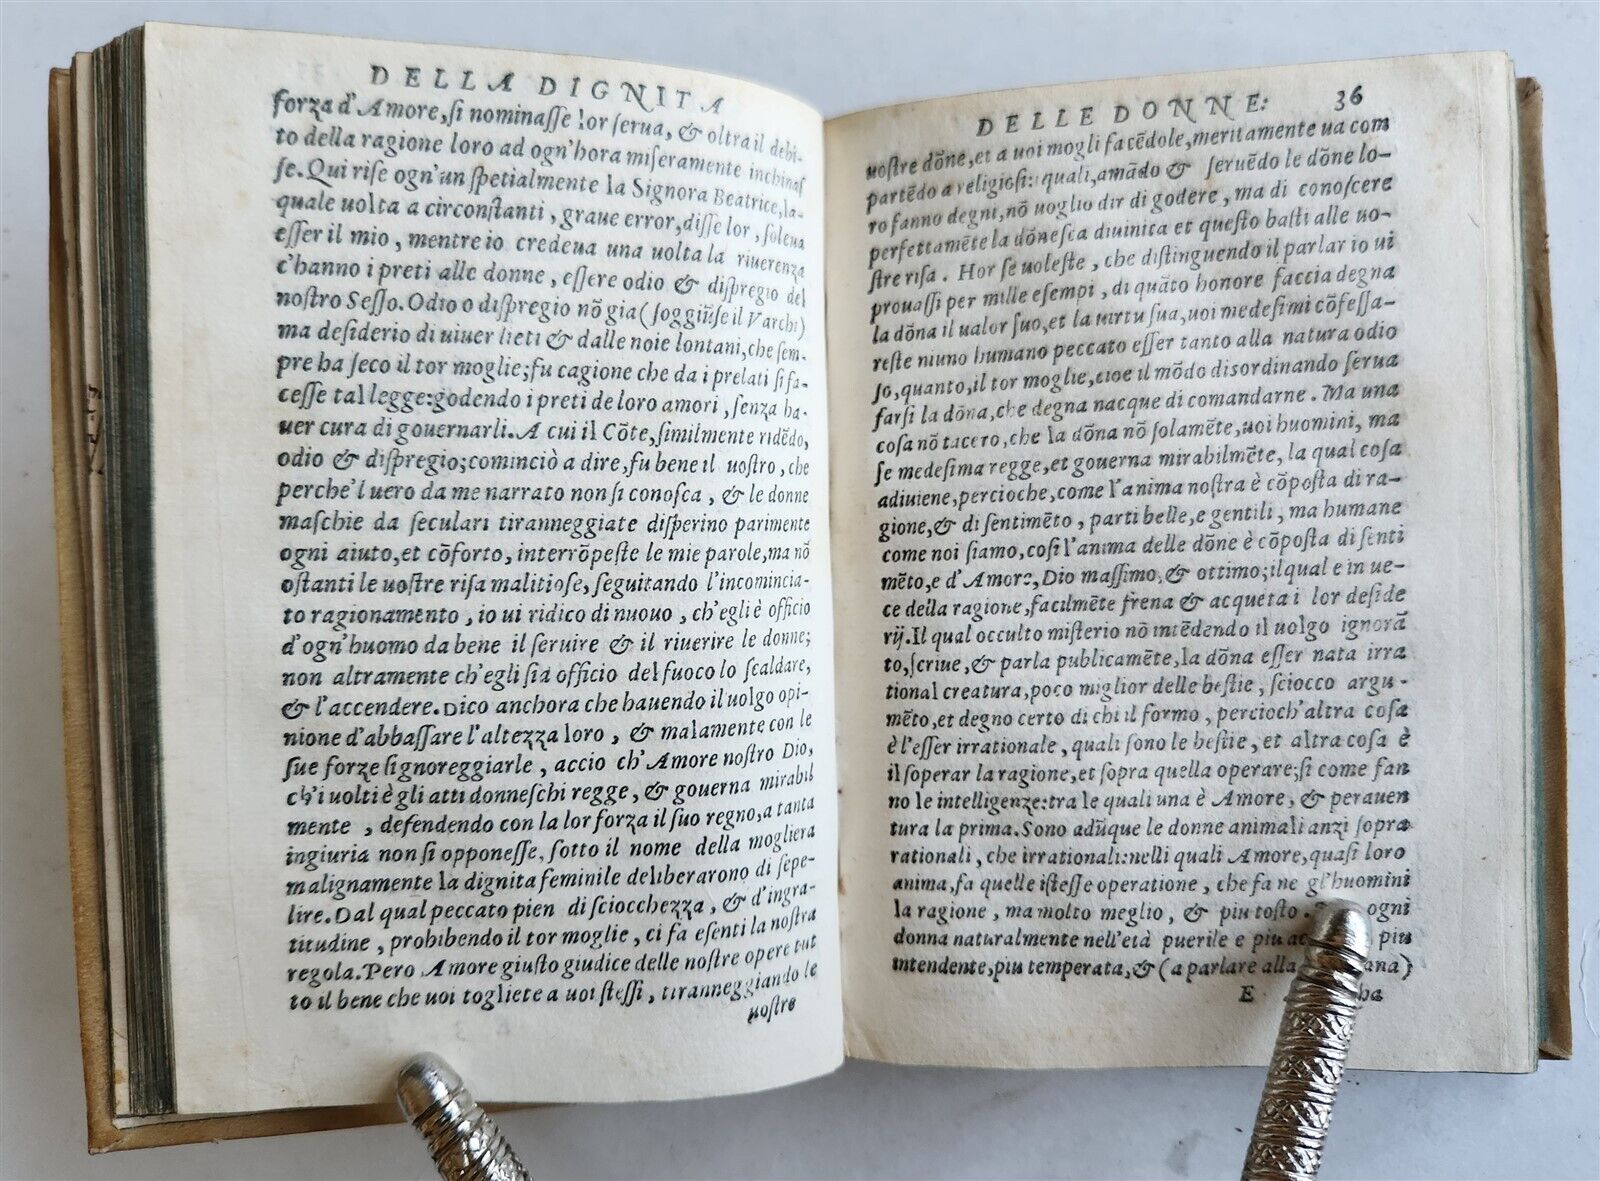 DELLA DIGNITA
forza d'Amore, si nominasse lor serua, & oltra il debi-
to della ragione loro ad ogn'hora miseramente inchinas
se. Qui rise ogn'un spetialmente la Signora Beatrice, la-
quale uolta a circonstanti, graue error, disse lor, soleua
esser il mio, mentre io credeua una uolta la riuerenza
c'hanno i preti alle donne, essere odio & dispregio del
nostro Sesso. Odio o dispregio nõ gia (soggiũse il Varchi)
ma desiderio di uiuer lieti & dalle noie lontani, che sem-
pre ha seco il tor moglie; fu cagione che da i prelati si fa-
cesse tal legge: godendo i preti de loro amori, senza ha-
uer cura di gouernarli. A cui il Cõte, similmente ridẽdo,
odio & dispregio; cominciò a dire, fu bene il uostro, che
perche'l uero da me narrato non si conosca, & le donne
maschie da seculari tiranneggiate disperino parimente
ogni aiuto, et cõforto, interrõpeste le mie parole, ma nõ
ostanti le uostre risa malitiose, seguitando l'incomincia-
to ragionamento, io ui ridico di nuouo, ch'egli è officio
d'ogn'huomo da bene il seruire & il riuerire le donne;
non altramente ch'egli sia officio del fuoco lo scaldare,
& l'accendere. Dico anchora che hauendo il uolgo opi-
nione d'abbassare l'altezza loro, & malamente con le
sue forze signoreggiarle, accio ch'Amore nostro Dio,
ch'i uolti è gli atti donneschi regge, & gouerna mirabil
mente, defendendo con la lor forza il suo regno, a tanta
ingiuria non si opponesse, sotto il nome della mogliera
malignamente la dignita feminile deliberarono di sepe-
lire. Dal qual peccato pien di sciocchezza, & d'ingra-
titudine, prohibendo il tor moglie, ci fa esenti la nostra
regola. Pero Amore giusto giudice delle nostre opere tut
to il bene che uoi togliete a uoi stessi, tiranneggiando le
uostre
DELLE DONNE: 36
uostre dõne, et a uoi mogli facẽdole, meritamente ua com
partẽdo a religiosi: quali, amãdo & seruẽdo le dõne lo-
ro fanno degni, nõ uoglio dir di godere, ma di conoscere
perfettamẽte la dõnesca diuinita et questo basti alle uo-
stre risa. Hor se uoleste, che distinguendo il parlar io ui
prouassi per mille esempi, di quãto honore faccia degna
la dõna il ualor suo, et la uirtu sua, uoi medesimi cõfessa-
reste niuno humano peccato esser tanto alla natura odio
so, quanto, il tor moglie, cioe il mõdo disordinando serua
farsi la dõna, che degna nacque di comandarne. Ma una
cosa nõ tacero, che la dõna nõ solamẽte, uoi huomini, ma
se medesima regge, et gouerna mirabilmẽte, la qual cosa
adiuiene, percioche, come l'anima nostra è cõposta di ra-
gione, & di sentimẽto, parti belle, e gentili, ma humane
come noi siamo, cosi l'anima delle dõne è cõposta di senti
mẽto, e d'Amore, Dio massimo, & ottimo; il qual e in ue-
ce della ragione, facilmẽte frena & acqueta i lor deside
rij. Il qual occulto misterio nõ intẽdendo il uolgo ignorã
to, scriue, & parla publicamẽte, la dõna esser nata irra
tional creatura, poco miglior delle bestie, sciocco argu-
mẽto, et degno certo di chi il formo, percioch'altra cosa
è l'esser irrationale, quali sono le bestie, et altra cosa è
il soperar la ragione, et sopra quella operare; si come fan
no le intelligenze: tra le quali una è Amore, & perauen
tura la prima. Sono adũque le donne animali anzi sopra
rationali, che irrationali: nelli quali Amore, quasi loro
anima, fa quelle istesse operatione, che fa ne gl'huomini
la ragione, ma molto meglio, & piu tosto. ogni
donna naturalmente nell'età puerile e piu piu
intendente, piu temperata, & (a parlare alla
E ha